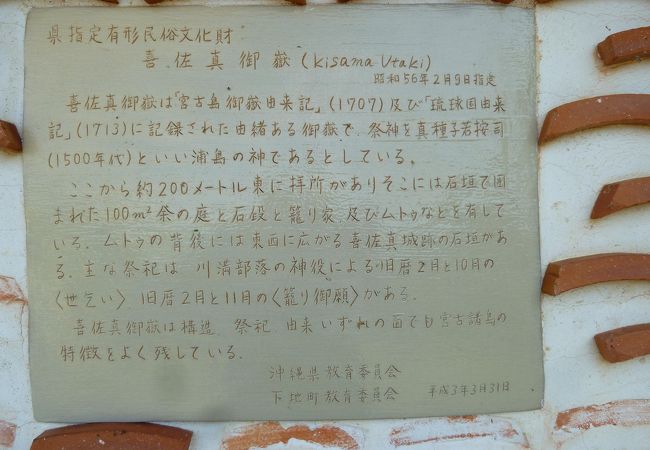 県指定有形民俗文化財
喜佐真御嶽(Kisama Utaki)
昭和56年2月9日指定
喜佐真御嶽は「宮古島御嶽由来記」(1707)及び「琉球国由来
記」(1713)に記録された由緒ある御嶽で、祭神を真種子若按司
(1500年代)といい浦島の神であるとしている。
ここから約200メートル東に拝所がありそこには石垣で囲
まれた100m²余の庭と石段と籠り家、及びムトゥなどを有して
いる。ムトゥの背後には東西に広がる喜佐真城跡の石垣があ
る。主な祭祀は、川満部落の神役による旧暦2月と10月の
〈世乞い〉 旧暦2月と11月の〈籠り御願〉がある。
喜佐真御嶽は構造、祭祀、由来いずれの面でも宮古諸島の
特徴をよく残している。
沖縄県教育委員会
下地町教育委員会 平成3年3月31日